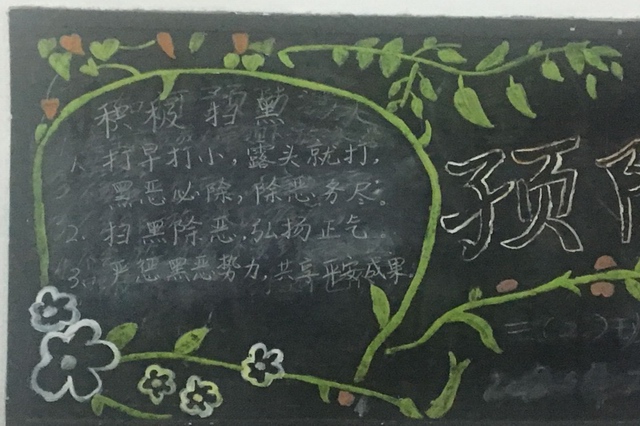 积极扫黑
1. 打早打小,露头就打,
黑恶必除,除恶务尽。
2. 扫黑除恶.弘扬正气.
3. 严惩黑恶势力,共享平安成果.
预